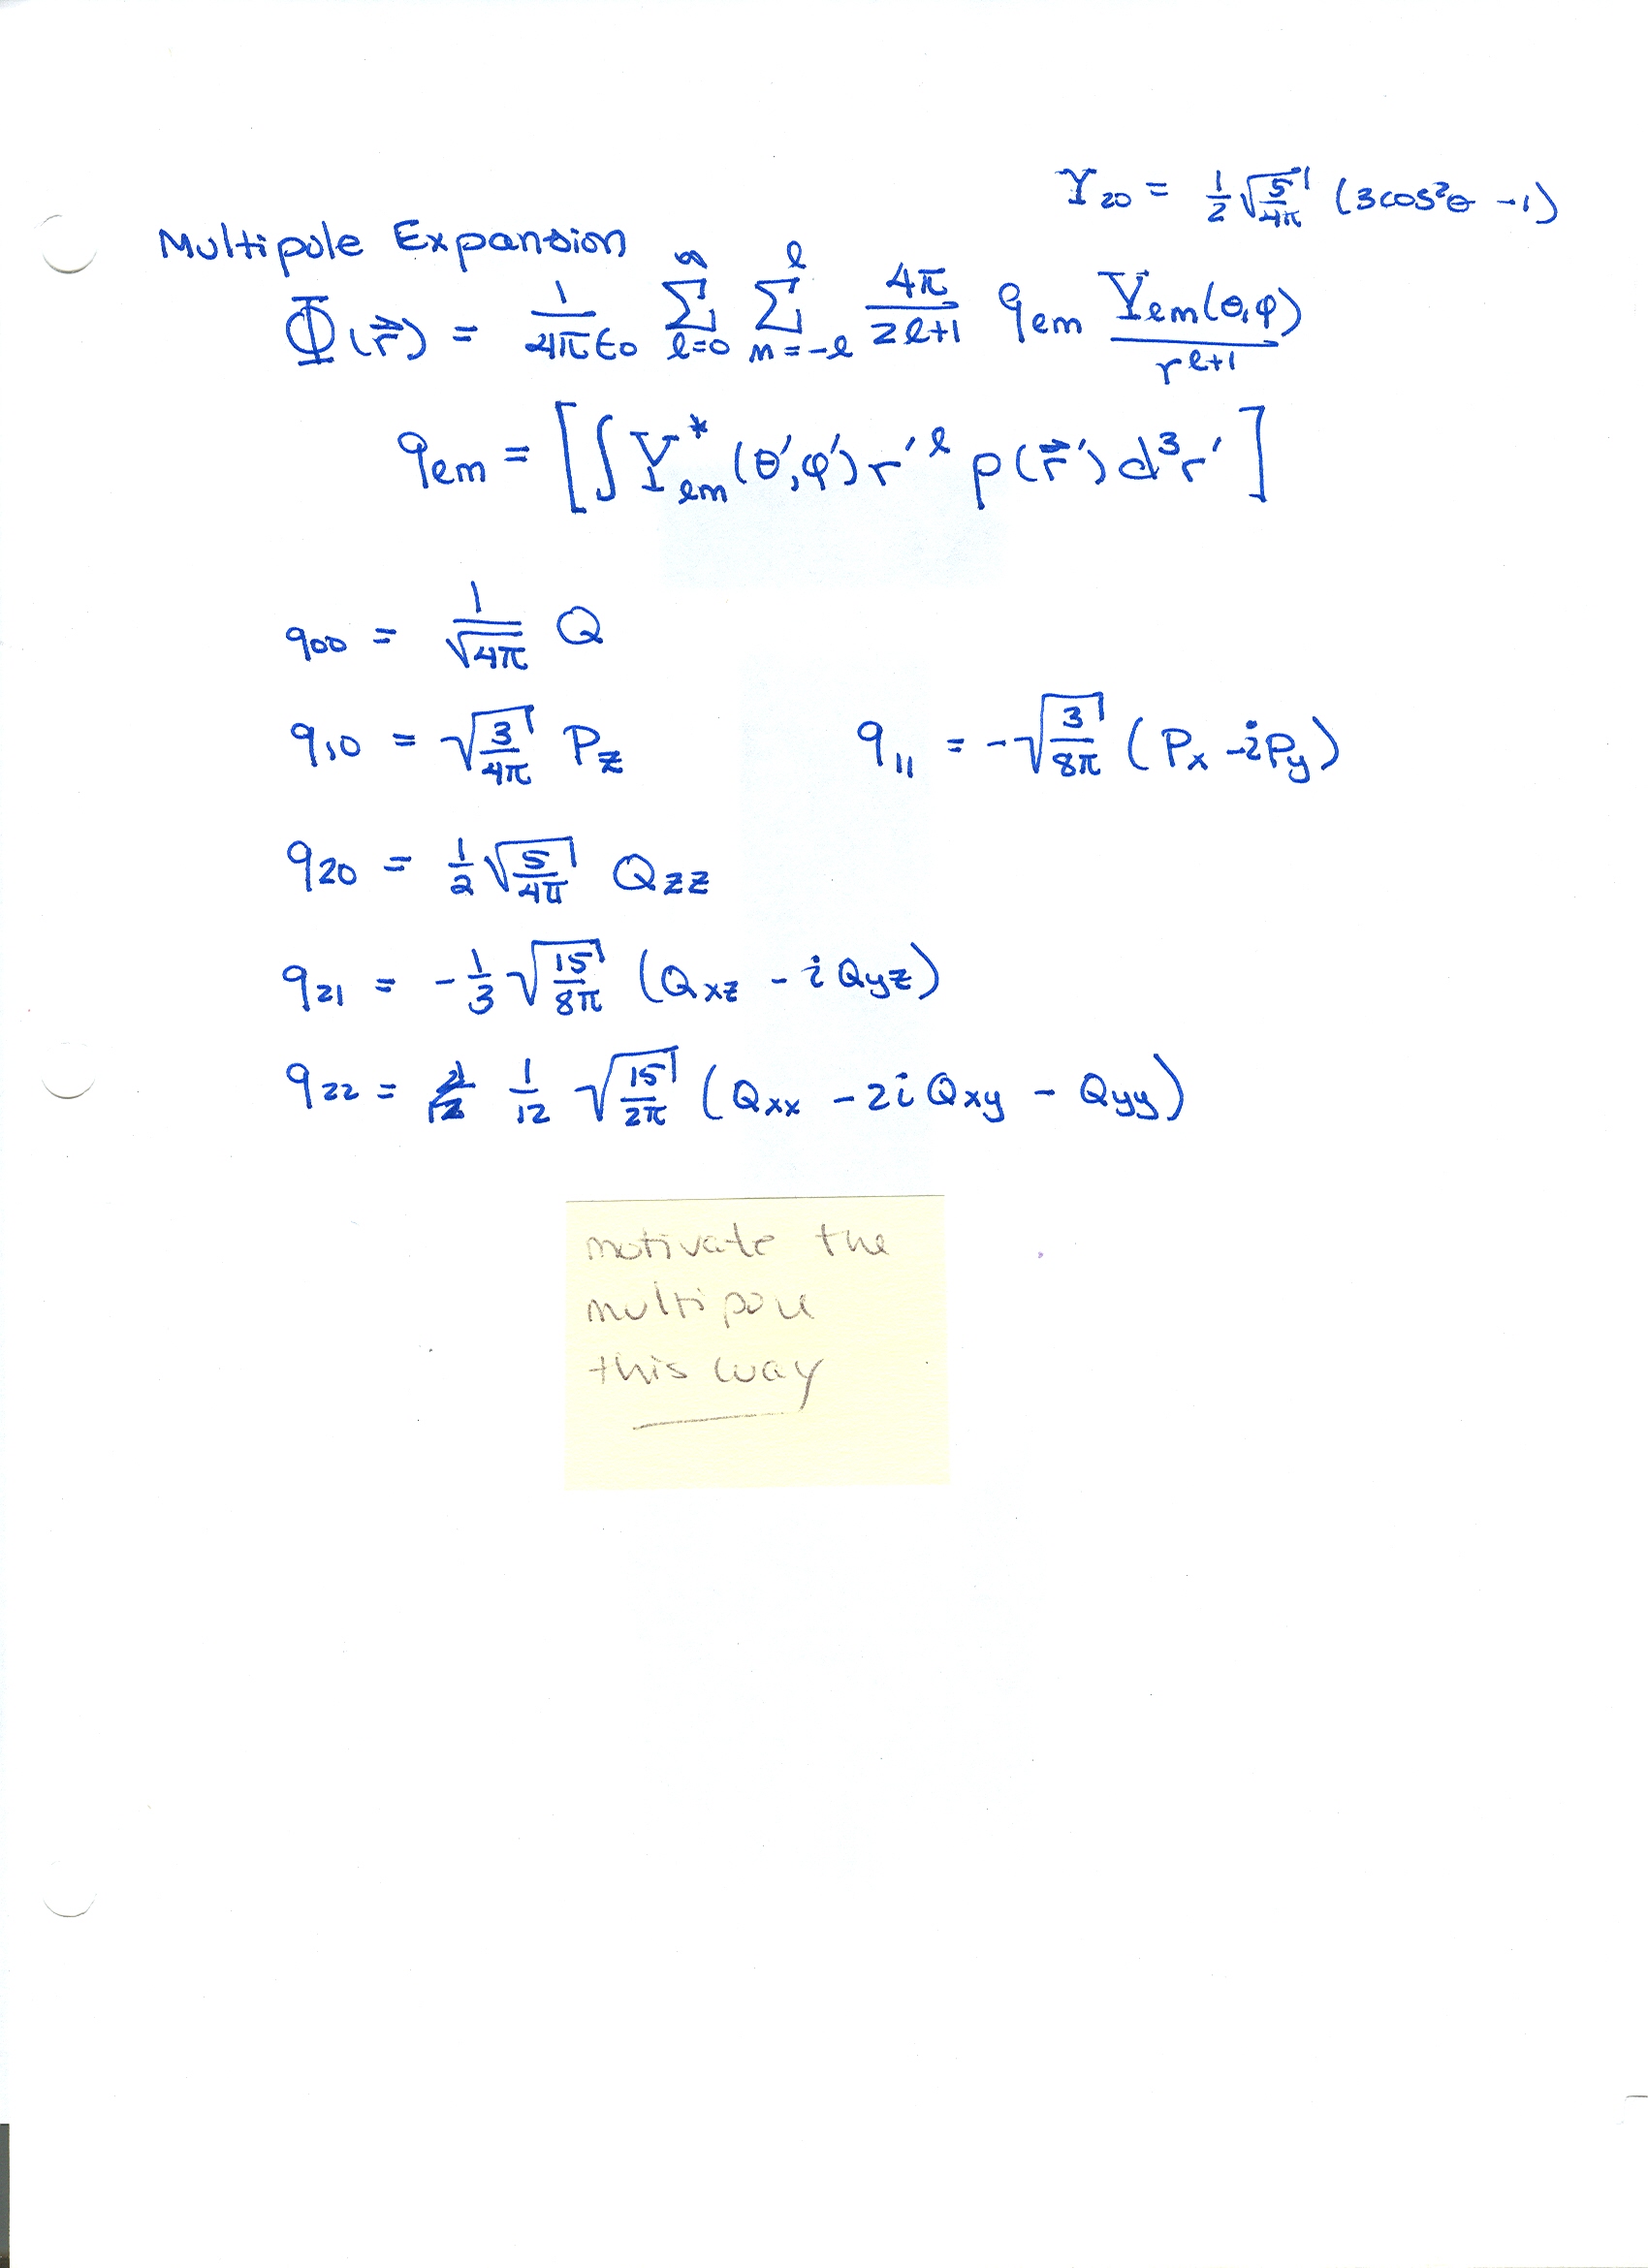 Y₂₀ = 1/2 √(5/4π) (3cos²θ -1)
Multipole Expansion
Φ(r⃗) = 1/(4πε₀) Σ_{ℓ=0}^{∞} Σ_{m=-ℓ}^{ℓ} 4π/(2ℓ+1) qℓm Yℓm(θ,φ)/r^{ℓ+1}
qℓm = [∫ Y*ℓm (θ′,φ′) r′^ℓ ρ(r⃗′) d³r′]
q₀₀ = 1/√4π Q
q₁₀ = √(3/4π) P_z q₁₁ = -√(3/8π) (P_x - iP_y)
q₂₀ = 1/2 √(5/4π) Q_zz
q₂₁ = -1/3 √(15/8π) (Q_xz - i Q_yz)
q₂₂ = 1/12 √(15/2π) (Q_xx - 2i Q_xy - Q_yy)
motivate the
multipole
this way